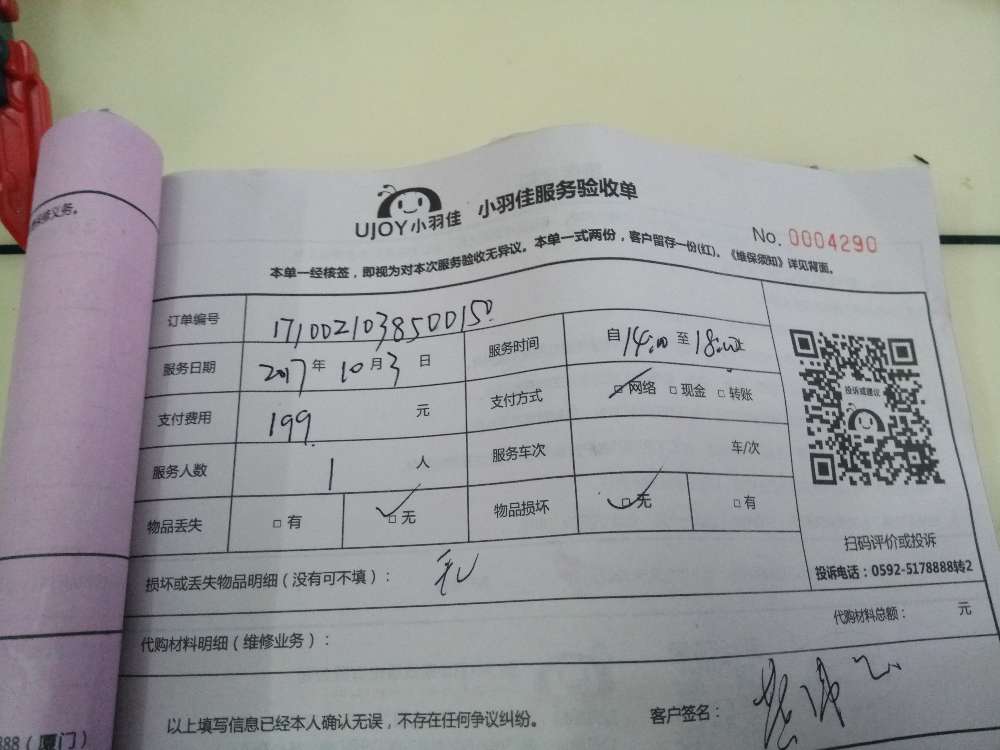 UJOY小羽佳 小羽佳服务验收单
No. 0004290
本单一经核签，即视为对本次服务验收无异议。本单一式两份，客户留存一份(红)。《维保须知》详见背面。
订单编号 171002103850015
服务日期 2017 年 10 月 3 日 服务时间 自 14:00 至 18:00 止
支付费用 199 元 支付方式 □ 网络 □ 现金 □ 转账
服务人数 1 人 服务车次 车/次
物品丢失 □ 有 □ 无 物品损坏 □ 无 □ 有
投诉或建议
扫码评价或投诉
投诉电话：0592-5178888转2
损坏或丢失物品明细（没有可不填）： 无
代购材料明细（维修业务）： 代购材料总额： 元
以上填写信息已经本人确认无误，不存在任何争议纠纷。 客户签名：
义务。
888（厦门）